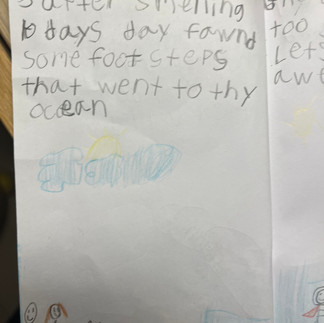 after smelling
10 days day fawnd
some foot steps
that went to thy
ocean
too
Let
aw